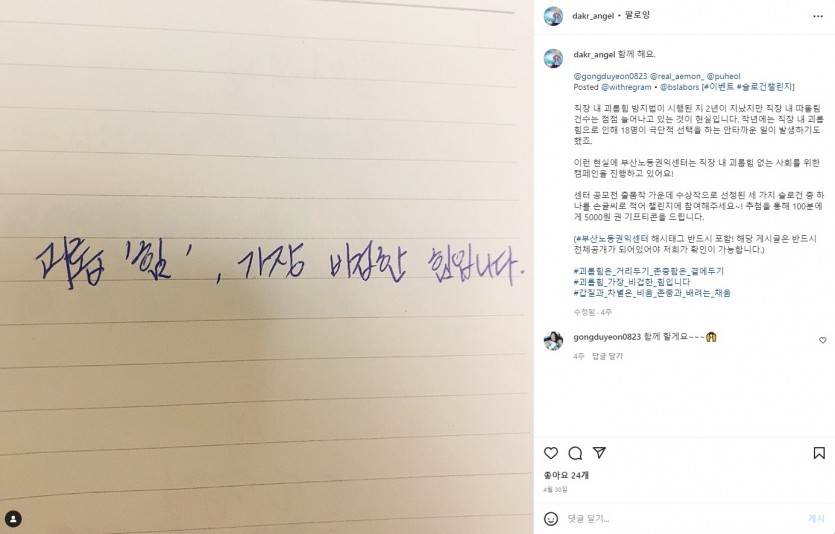 괴롭 '힘', 가장 비겁한 힘입니다.
dakr_angel • 팔로잉
dakr_angel 함께 해요.
@gongduyeon0823 @real_aemon_ @puheol
Posted @withregram • @bslabors [#이벤트 #슬로건챌린지]
직장 내 괴롭힘 방지법이 시행된 지 2년이 지났지만 직장 내 따돌림
건수는 점점 늘어나고 있는 것이 현실입니다. 작년에는 직장 내 괴롭
힘으로 인해 18명이 극단적 선택을 하는 안타까운 일이 발생하기도
했죠.
이런 현실에 부산노동권익센터는 직장 내 괴롭힘 없는 사회를 위한
캠페인을 진행하고 있어요!
센터 공모전 출품작 가운데 수상작으로 선정된 세 가지 슬로건 중 하
나를 손글씨로 적어 챌린지에 참여해주세요~! 추첨을 통해 100분에
게 5000원 권 기프티콘을 드립니다.
(#부산노동권익센터 해시태그 반드시 포함! 해당 게시글은 반드시
전체공개가 되어있어야 저희가 확인이 가능합니다.)
#괴롭힘은_거리두기_존중함은_곁에두기
#괴롭힘_가장_비겁한_힘입니다
#갑질과_차별은_비움_존중과_배려는_채움
수정됨 · 4주
gongduyeon0823 함께 할게요~~~🙆
4주 답글 달기
좋아요 24개
4월 30일
댓글 달기...
게시